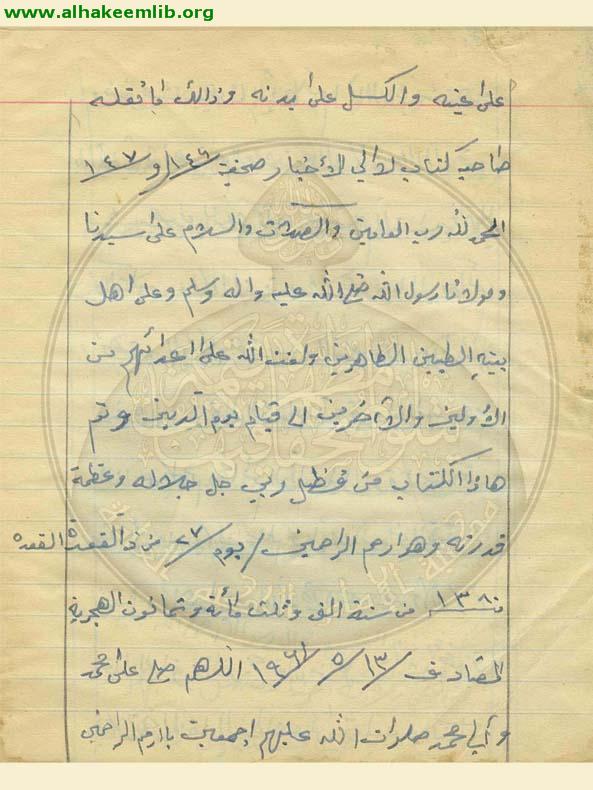 www.alhakeemlib.org
على عينه والكسل على بدنه وذالك ما نقله
صاحب كتاب لآلي الأخبار صحفية ١٤٦/ و ١٤٧
الحمد لله رب العالمين والصلات والسلام على سيدنا
ومولانا رسول الله صلى الله عليه واله وسلم وعلى اهل
بيته الطيبين الطاهرين ولعنت الله على اعدائهم من
الأولين والآخرين الى قيام يوم الدين وتم
هاذا الكتاب من فضل ربي جل جلاله وعظمة
قدرته وهو ارحم الراحمين / يوم ٢٧/ من ذالقعدة القعده
١٣٨٠ من سنة الف وثلث مائة وثمانون الهجرية
المصادف ١٣/ ٥/ ١٩٦١ اللهم صل على محمد
وآل محمد صلوات الله عليهم اجمعين يا ارحم الراحمين